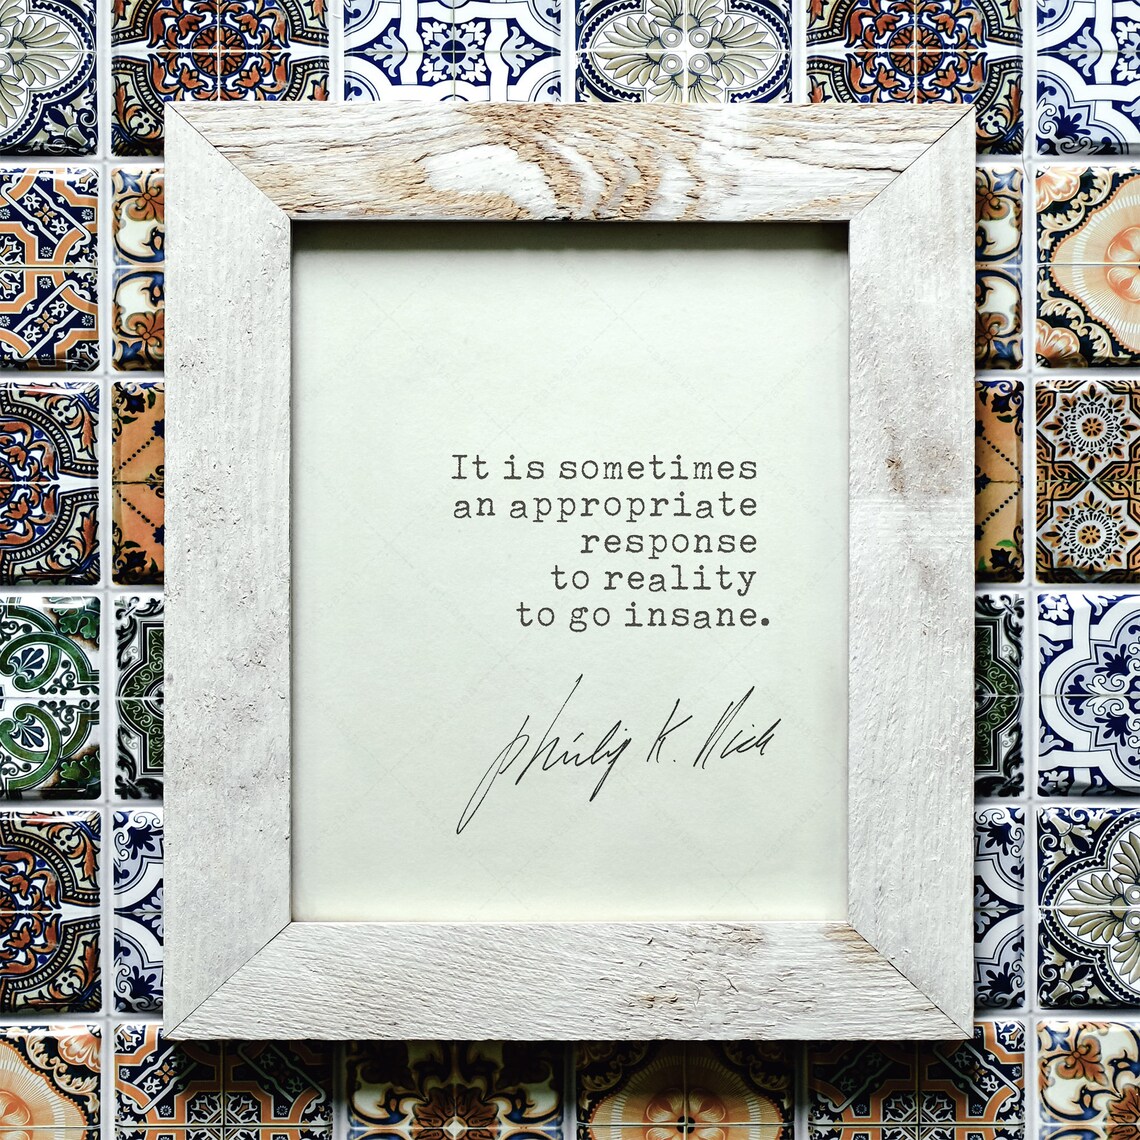 It is sometimes
an appropriate
response
to reality
to go insane.
Philip K. Dick